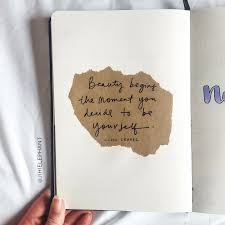 Beauty begins
the moment you
decide to be
yourself.
CHANEL
@JIHIELEPHANT